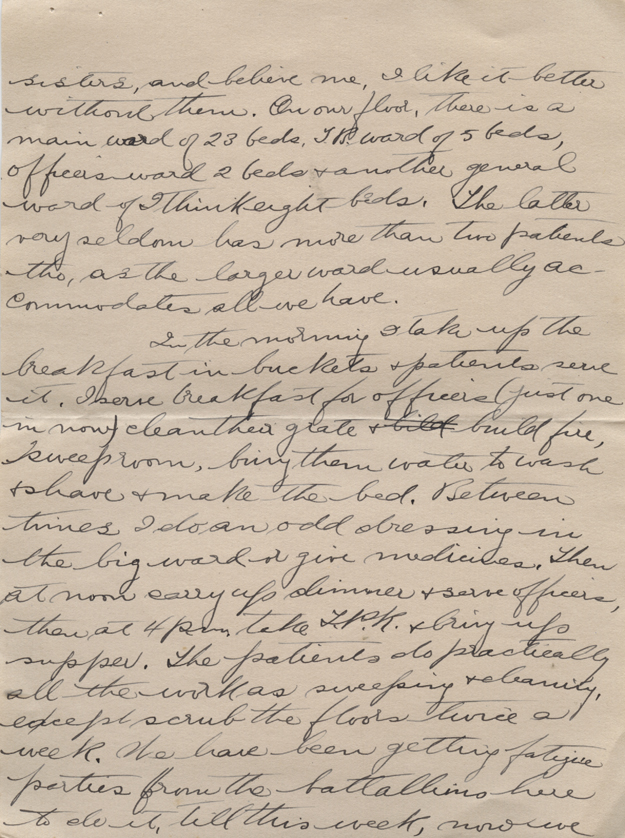 sisters, and believe me, I like it better
without them. On our floor, there is a
main ward of 23 beds, T.B. ward of 5 beds,
officers ward 2 beds & another general
ward of I think eight beds. The latter
very seldom has more than two patients
tho, as the larger ward usually ac-
commodates all we have.
In the morning I take up the
breakfast in buckets & patients serve
it. I serve breakfast for officers (just one
in now) clean their grate & build fire,
sweep room, bring them water to wash
& shave & make the bed. Between
times I do an odd dressing in
the big ward or give medicines. Then
at noon carry up dinner & serve officers,
then at 4 p.m. take T.P.R. & bring up
supper. The patients do practically
all the work as sweeping & cleaning,
except scrub the floors twice a
week. We have been getting fatigue
parties from the battallions here
to do it, till this week, now we